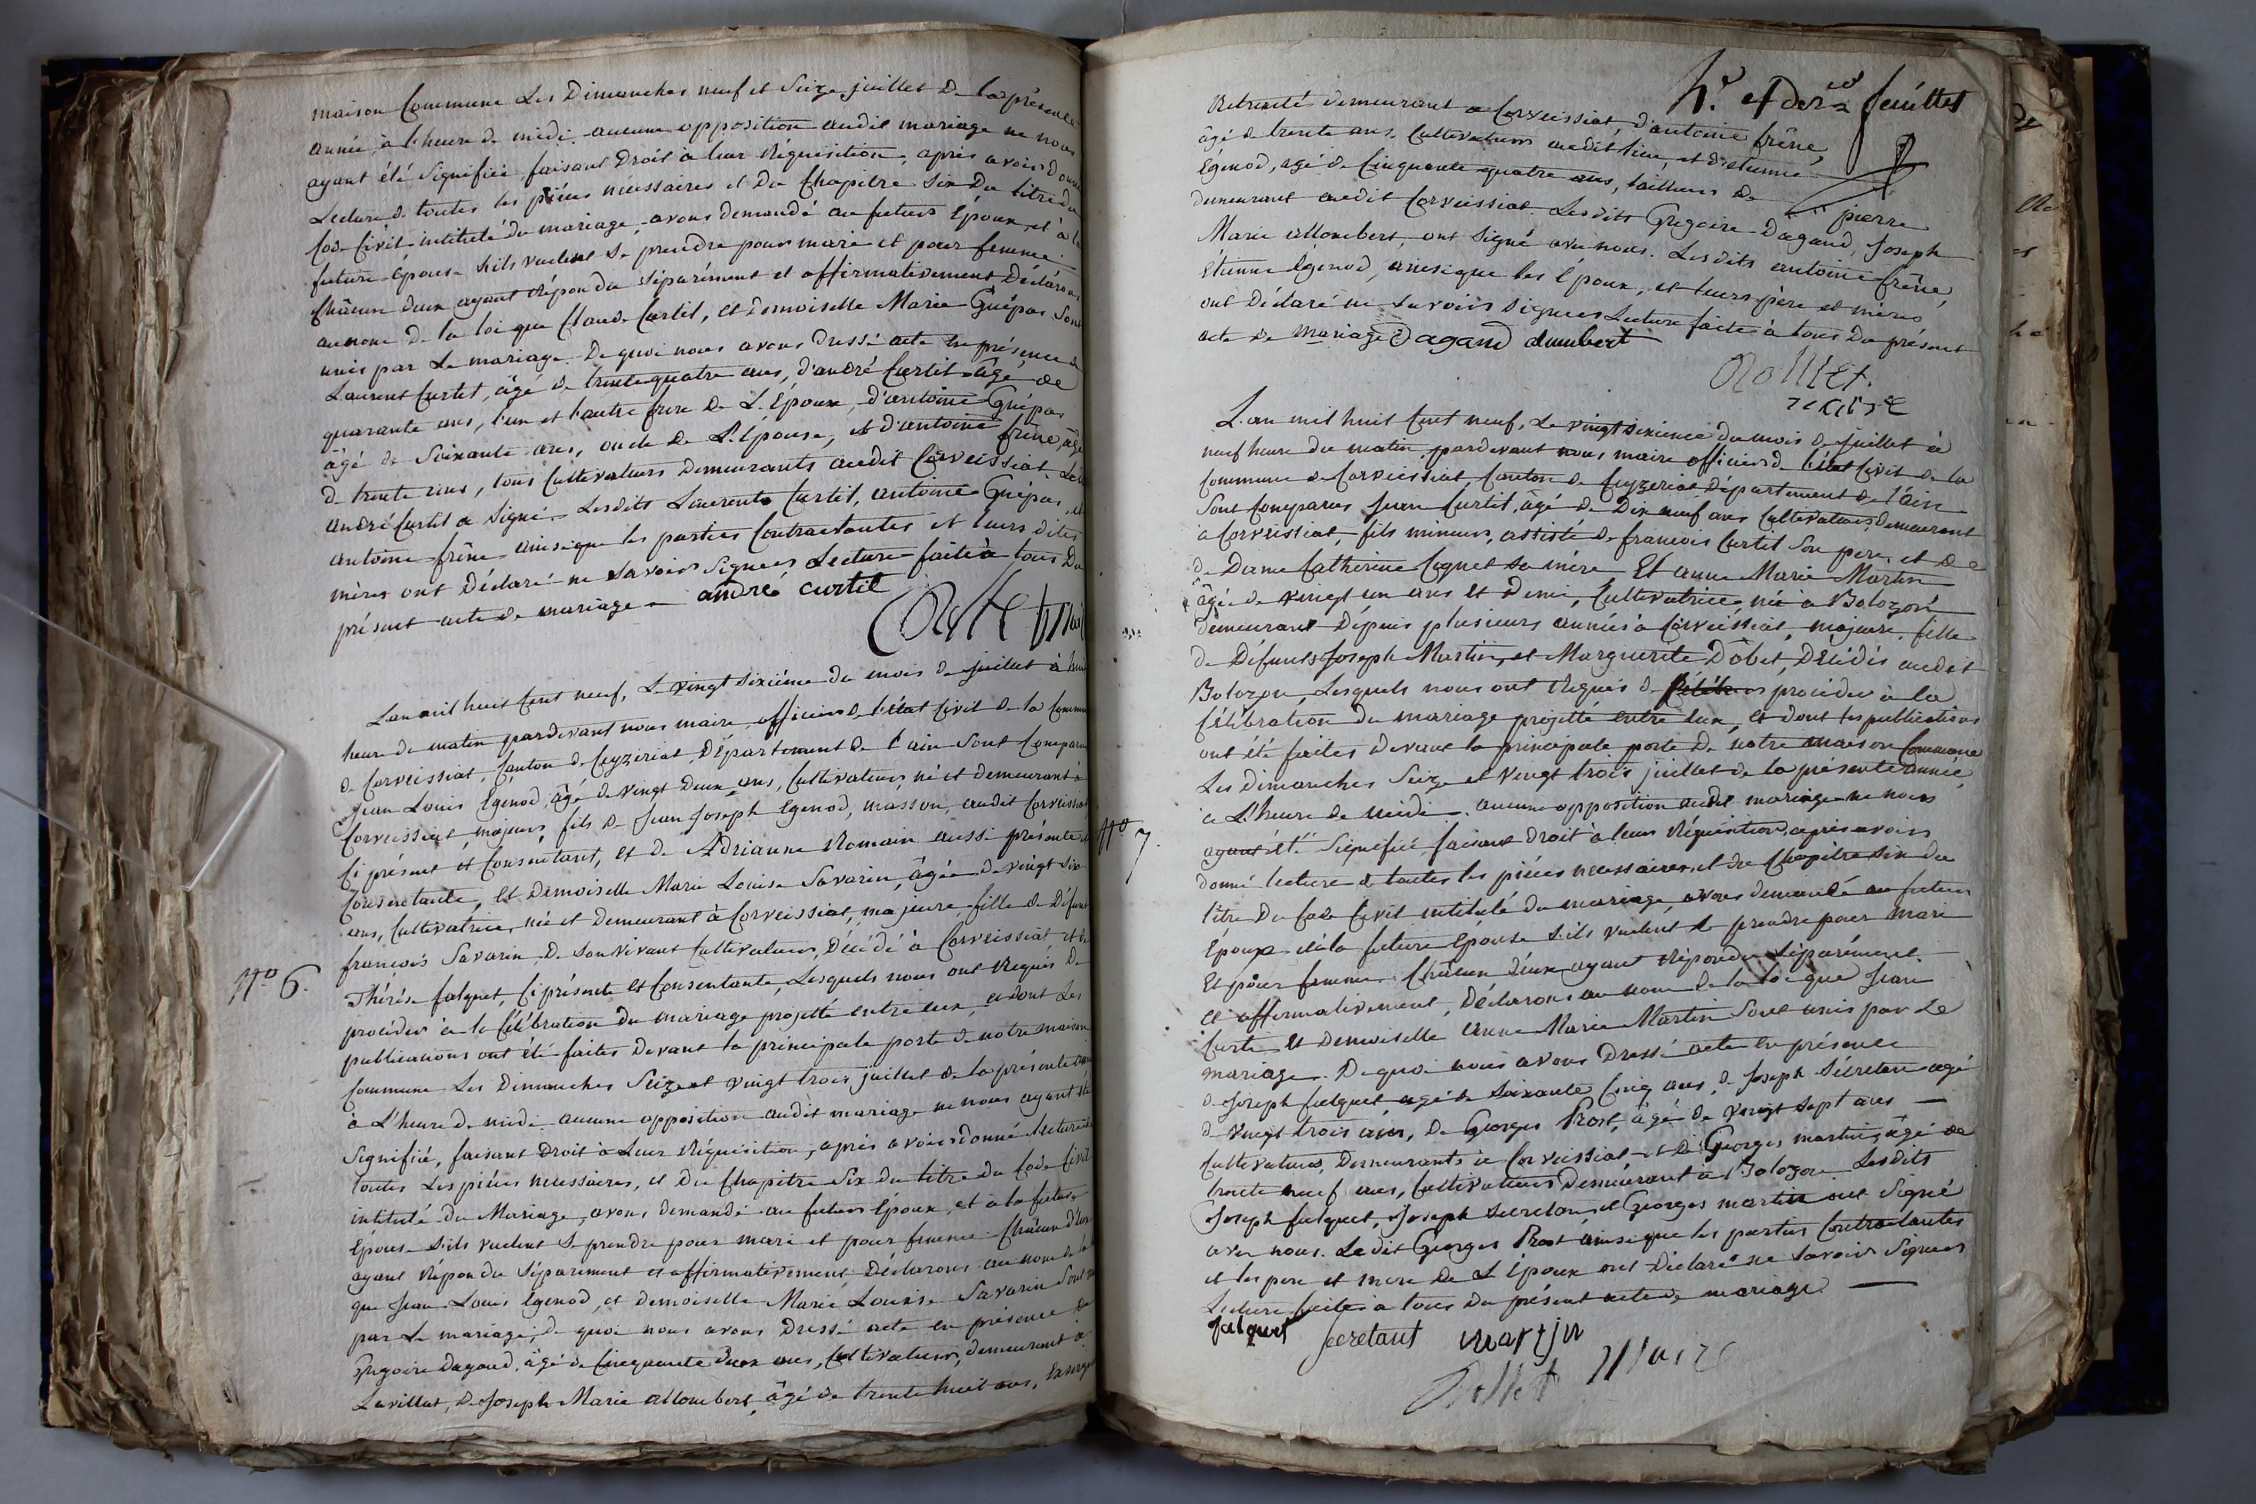 maison Commune Les Dimanches neuf et Seize juillet De la présente
année, à l'heure de midi. aucune opposition audit mariage ne nous
ayant été Signifiée faisant Droit à leur Réquisition, après avoir Donné
Lecture de toutes les pièces nécessaires et Du Chapitre Six Du titre du
Code Civil intitulé du mariage, avons demandé au futur Époux et à la
future Épouse s'ils veulent se prendre pour mari et pour femme.
Châcun deux ayant Répondu séparément et affirmativement Déclarons
au nom de la loi que Claude Curtil, et Demoiselle Marie Guépas Sont
unis par Le mariage. De quoi nous avons Dressé acte En présence de
Laurent Curtet, âgé de trente quatre ans, d'andré Curtil âgé de
quarante ans, l'un et l'autre frère De L'Époux, d'antoine Guépas
âgé de Soixante ans, oncle De L'Épouse, et d'antoine frêne, âgé
de trente ans, tous Cultivateurs Demeurants audit Corveissiat. Ledit
André Curtil a Signé. Lesdits Laurent Curtil, antoine Guépas, et
antoine frêne ainsi que les parties Contractantes et leurs dites
mères ont Déclaré ne Savoir Signer Lecture faite à tous Du
présent acte de mariage. andré curtil

L'an mil huit Cent neuf, Le vingt sixième du mois de juillet à huit
heure du matin pardevant nous maire officier de l'état Civil de la Commune
de Corveissiat, Canton de Ceyzériat, Département de l'ain Sont Comparus
Jean Louis Egenod, âgé de vingt Deux ans, Cultivateur né et demeurant à
Corveissiat majeur, fils de Jean Joseph Egenod, masson, audit Corveissiat
Ci présent et Consentant, et de Adrianne Romain aussi présente et
Consentante, Et Demoiselle Marie Louise Savarin, âgée De vingt Six
ans, Cultivatrice, née et Demeurant à Corveissiat, majeure, fille de Défunt
françois Savarin De Son Vivant Cultivateur, Décédé à Corveissiat et de
N° 6.
Thérèse falquet, Ci présente et Consentante, Lesquels nous ont Requis De
procéder à la Célébration Du mariage projetté entre eux, et dont Les
publications ont été faites Devant la principale porte De notre maison
Commune Les Dimanches Seize et vingt trois juillet de la présente année
à L'heure de midi. aucune opposition audit mariage ne nous ayant été
Signifié, faisant Droit à Leur Réquisition, après avoir donné lecture de
toutes Les pièces nécessaires, et Du Chapitre Six du titre du Code Civil
intitulé Du Mariage, avons demandé au futur Époux, et à la future
Épouse s'ils veulent se prendre pour mari et pour femme. Châcun d'eux
ayant Répondu Séparément et affirmativement Déclarons au nom de la loi
que Jean Louis Egenod, et Demoiselle Marie Louise Savarin Sont unis
par Le mariage; de quoi nous avons Dressé acte en présence de
Grégoire Dagand, âgé de Cinquante Deux ans, Cultivateur, demeurant à
Lavillat, de Joseph Marie allombert, âgé de trente huit ans,
4.e et der.er feuillet
Retraité demeurant à Corveissiat, d'antoine frêne,
âgé de trente ans, Cultivateur audit lieu, et d'etienne
Egenod, agé de Cinquante quatre ans, tailleur de pierre
demeurant audit Corveissiat. Lesdits Grégoire Dagand, Joseph
Marie allombert, ont Signé avec nous. Lesdits antoine frêne,
Étienne Egenod, ainsi que les Époux, et leurs père et mères
ont Déclaré ne Savoir Signer Lecture faite à tous Du présent
acte De mariage. Dagand alumbert

L'an mil huit Cent neuf, Le vingt sixième du mois de juillet à
neuf heure du matin, pardevant nous maire officier de l'état Civil de la
Commune de Corveissiat, Canton de Ceyzeriat Département de l'ain
Sont Comparus Jean Curtil, âgé de Dix neuf ans Cultivateur, demeurant
à Corveissiat, fils mineur, assisté de françois Curtil Son père, et de
de Dame Catherine Coquet sa mère Et anne Marie Martin
âgée de vingt un ans et Demi, Cultivatrice, née à Bolozon
demeurant Depuis plusieurs années à Corveissiat, majeure, fille
de Défunts Joseph Martin, et Marguerite Dobet, Décédés audit
Bolozon, Lesquels nous ont Requis de procéder à la
Célébration du mariage projetté entre Eux, et dont les publications
ont été faites devant la principale porte de notre maison Commune
Les Dimanches Seize et Vingt trois juillet de la présente année,
à L'heure de midi. aucune opposition audit mariage ne nous
N° 7.
ayant été Signifiée, faisant Droit à leur Réquisition, après avoir
donné lecture de toutes les pièces nécessaires, et du Chapitre Six du
titre Du Code Civil intitulé du mariage, avons demandé au futur
Époux et à la future Épouse s'ils veulent se prendre pour mari
Et pour femme Châcun d'eux ayant Répondu Séparément
et affirmativement, Déclarons au nom De la loi que Jean
Curtil Et Demoiselle anne Marie Martin Sont unis par Le
mariage. De quoi nous avons Dressé acte En présence
de Joseph falquet, agé de Soixante Cinq ans, de Joseph Sécretan agé
de vingt trois ans, de Georges Prost, âgé de vingt Sept ans
Cultivateurs, Demeurants à Corveissiat et de Georges martin, âgé de
trente neuf ans, Cultivateur Demeurant à Bolozon. Lesdits
Joseph falquet, Joseph Secretan et Georges martin ont Signé
avec nous. Le dit Georges Prost ainsi que les parties Contractantes
et les père et mère De L'Époux ont Déclaré ne Savoir Signer
Lecture faite à tous Du présent acte de mariage.
falquet Secretant martin
maire